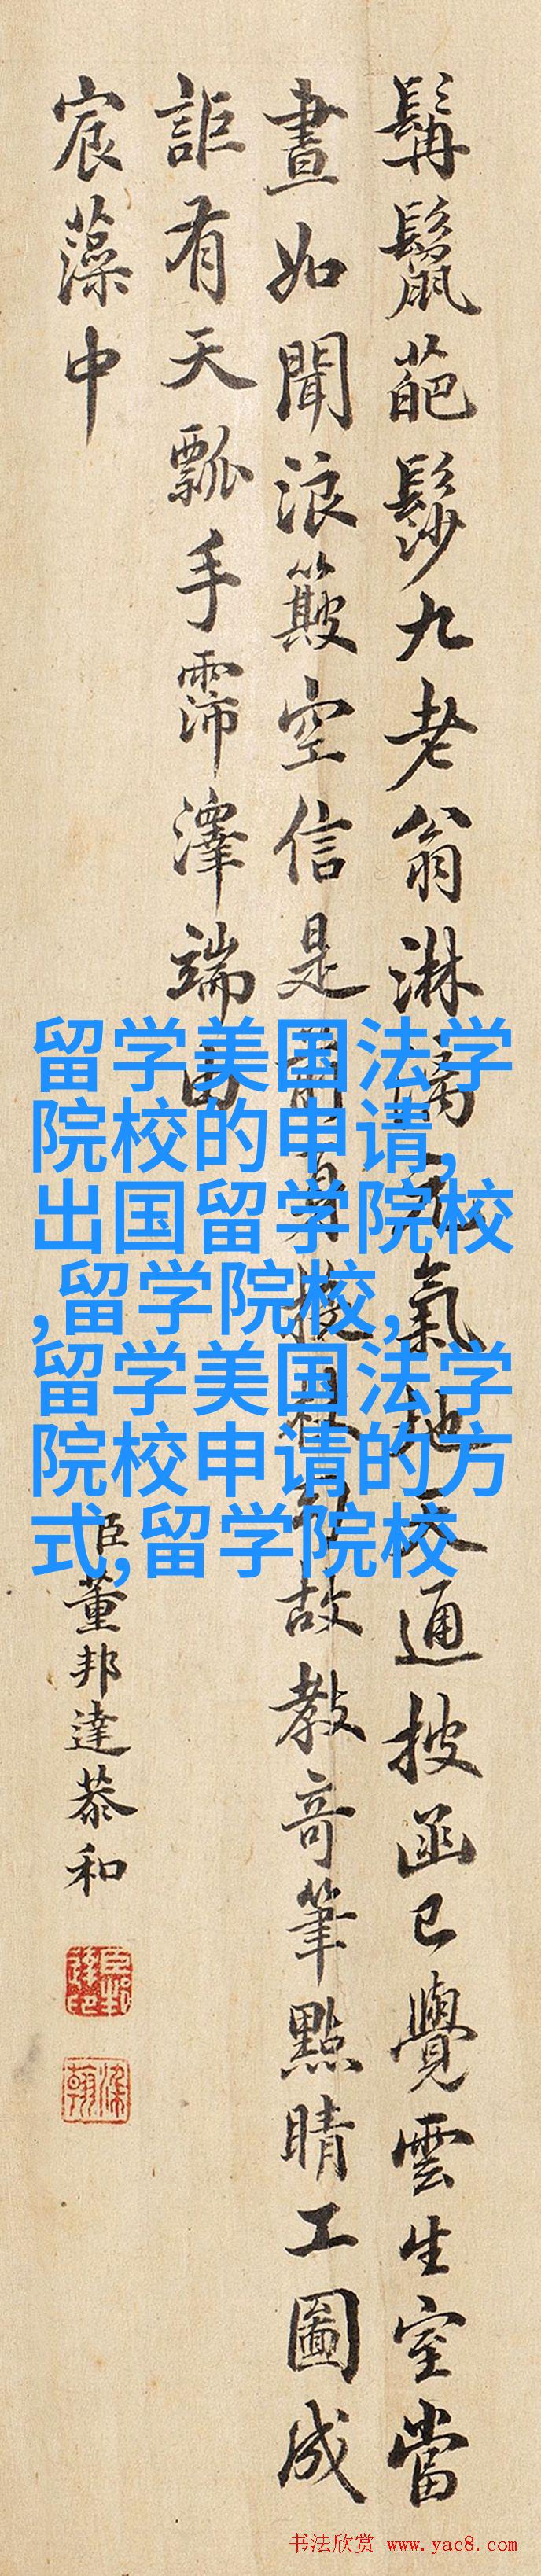 髯鬣葩髿九老翁淋漓元氣地天通披函已覺雲生室當
晝如聞浪簸空信是前身故教奇筆點睛工圖成
詎有天瓢手霈澤端由
宸藻中
臣董邦達恭和
染翰
留学美国法学
院校的申请,
出国留学院校
,留学院校,
留学美国法学
院校申请的方
式,留学院校
书法欣赏 www.yac8.com